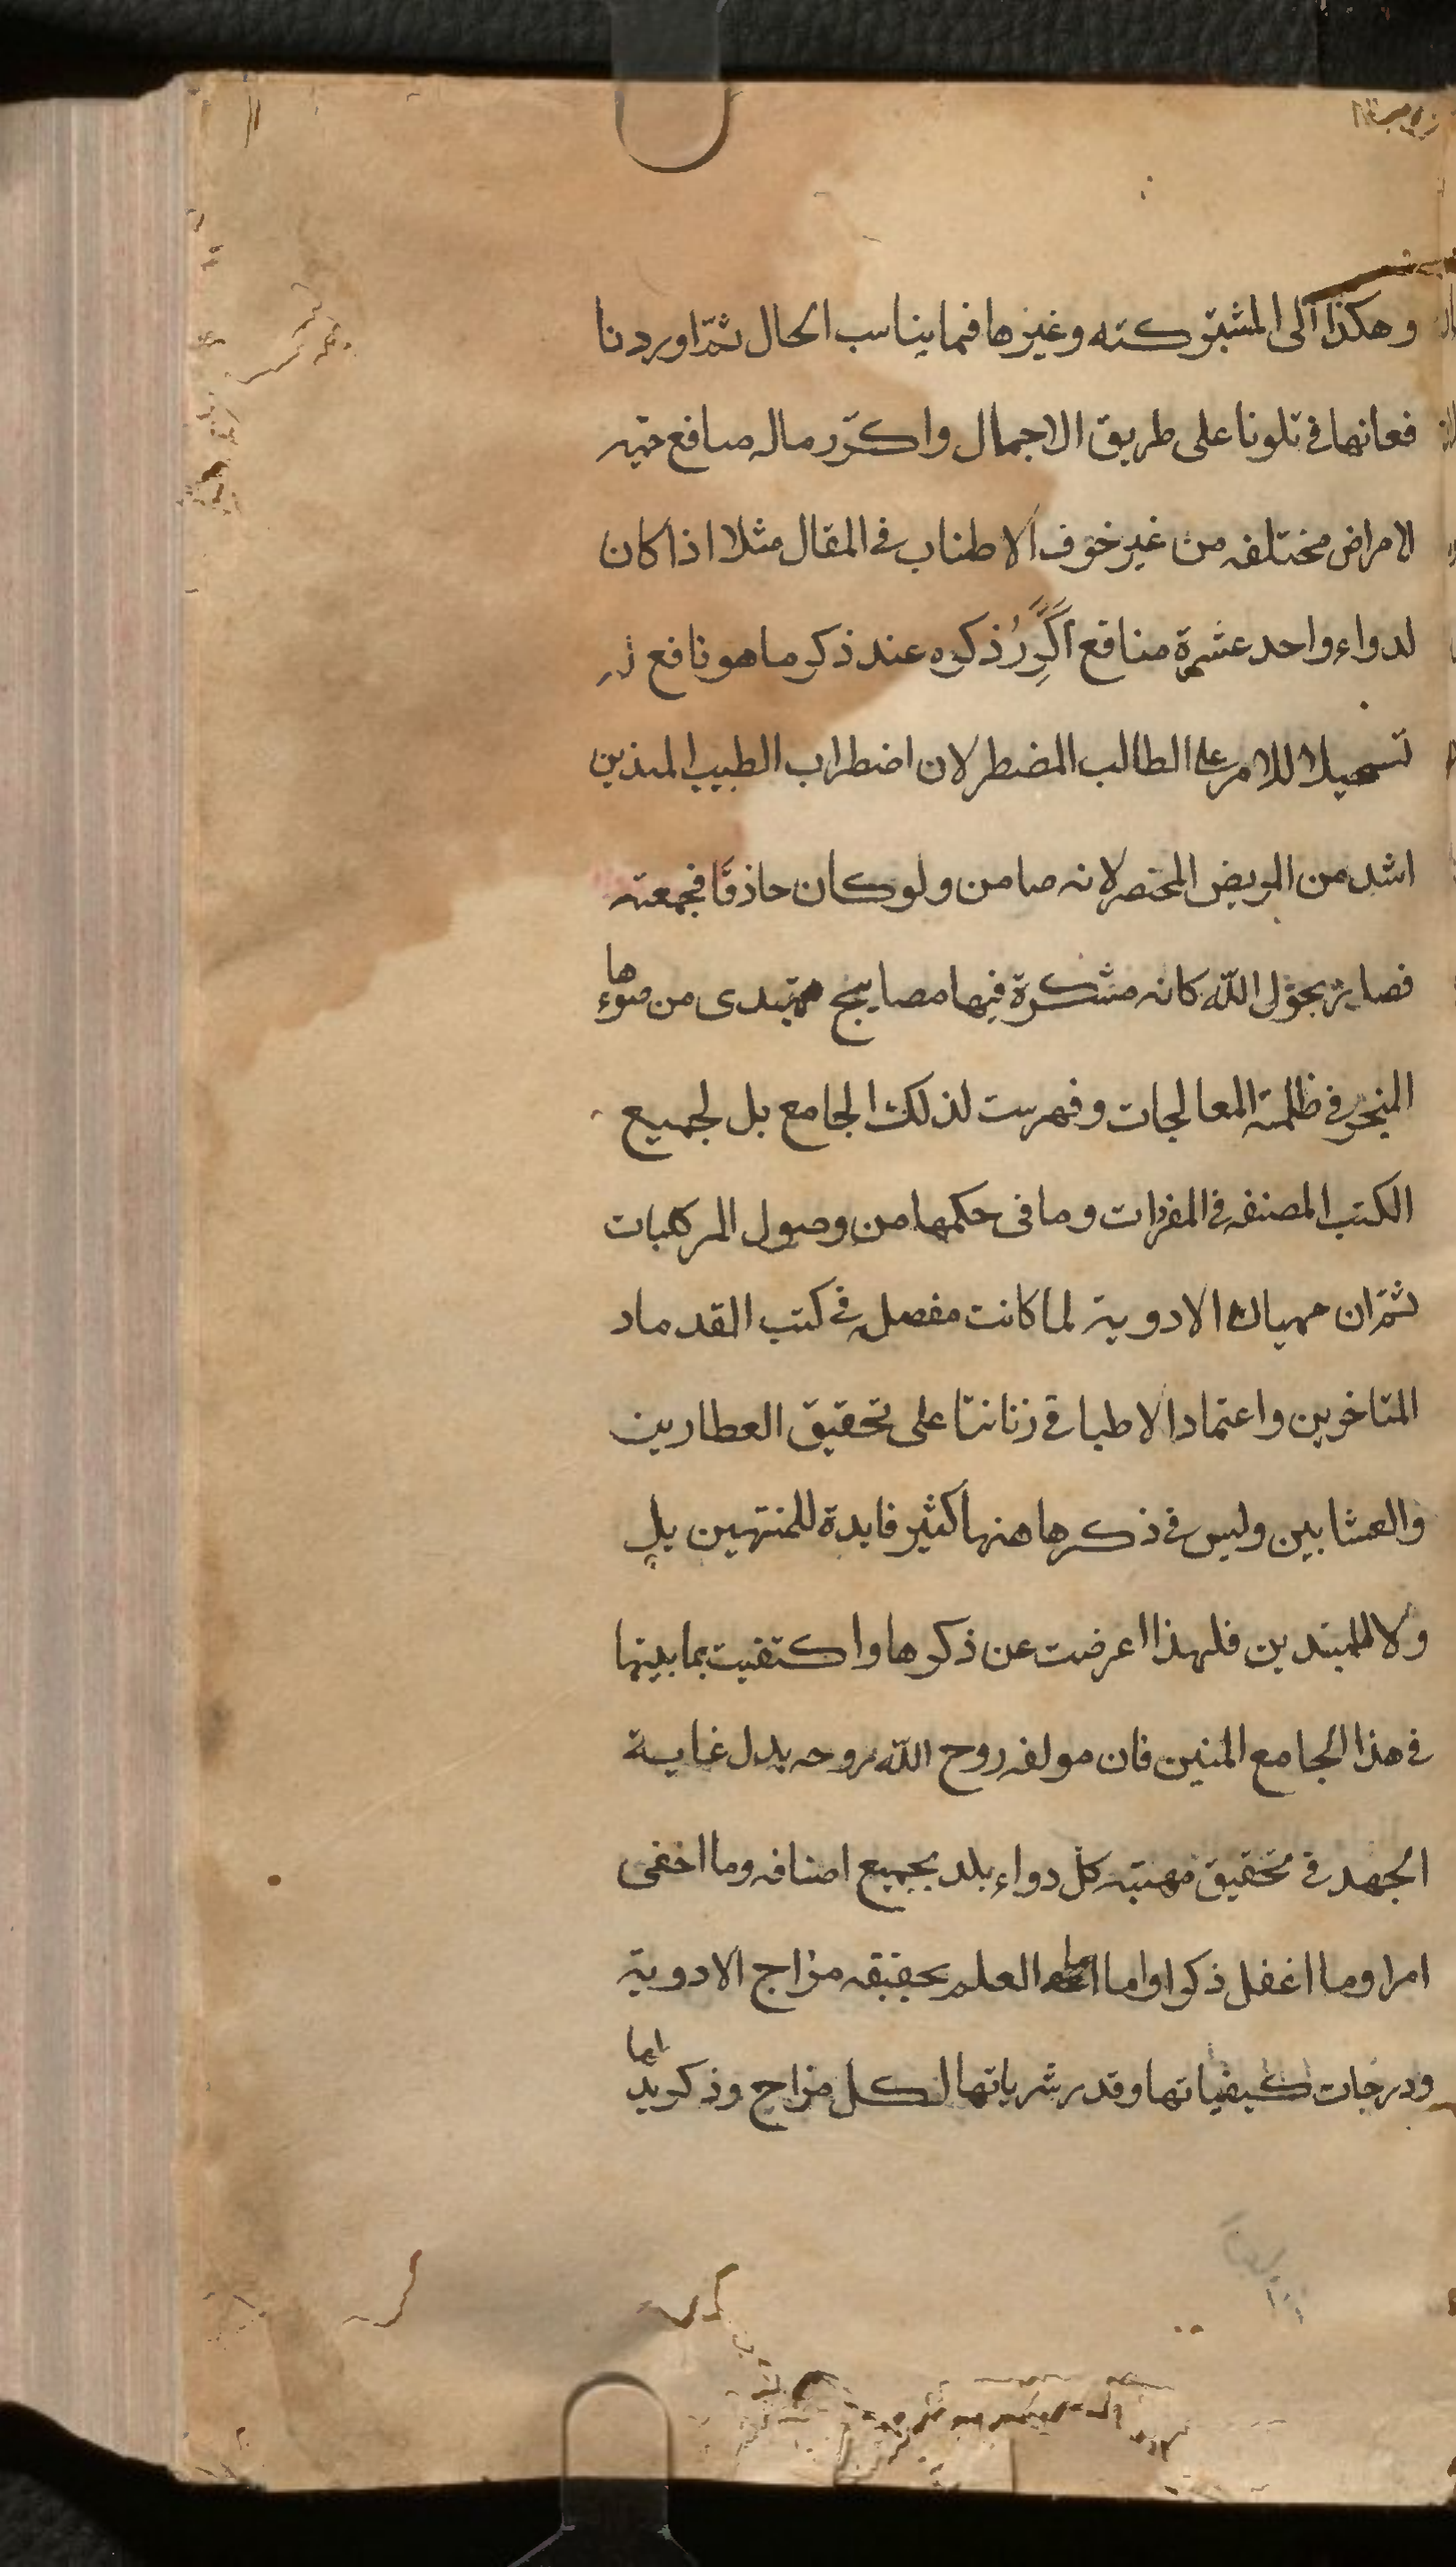 وهكذا الى المشتركته وغيرها فيما يناسب الحال ثمّ اوردنا
فعانها فى تلونا على طريق الاجمال واكرّر ماله منافع
لامراض مختلفه من غير خوف الاطناب فى المقال مثلا اذا كان
لدواء واحد عشرة منافع اكَرِّرُ ذكره عند ذكر ما هو نافع
تسهيلا للامر على الطالب المضطر لان اضطراب الطبيب المتدين
اشد من المريض المحتضر لانه ضامن ولو كان حاذقًا فجمعته
فصار بحول الله كانه مشكوة فيها مصابيح يهتدى من ضوءها
المتحير فى ظلمة المعالجات وفهرست لذلك الجامع بل لجميع
الكتب المصنفه فى المفردات وما فى حكمها من وصول المركبات
ثمّ ان مهيات الادوية لما كانت مفصله فى كتب القدما و
المتاخرين واعتماد الاطبا فى زناننا على تحقيق العطارين
والعشابين وليس فى ذكرها هنها كثير فايدة للمنتهين بل
ولا للمبتدين فلهذا اعرضت عن ذكرها واكتفيت بما بينها
فى هذا الجامع المتين فان مولفه روح الله روحه بذل غاية
الجهد فى تحقيق مهيته كل دواء بلد بجميع اصنافه وما اخفى
امرا وما اغفل ذكرا واما العلم بحقيقه مزاج الادوية
ودرجات كيفياتها وقدر شرباتها لكل مزاج وذكر